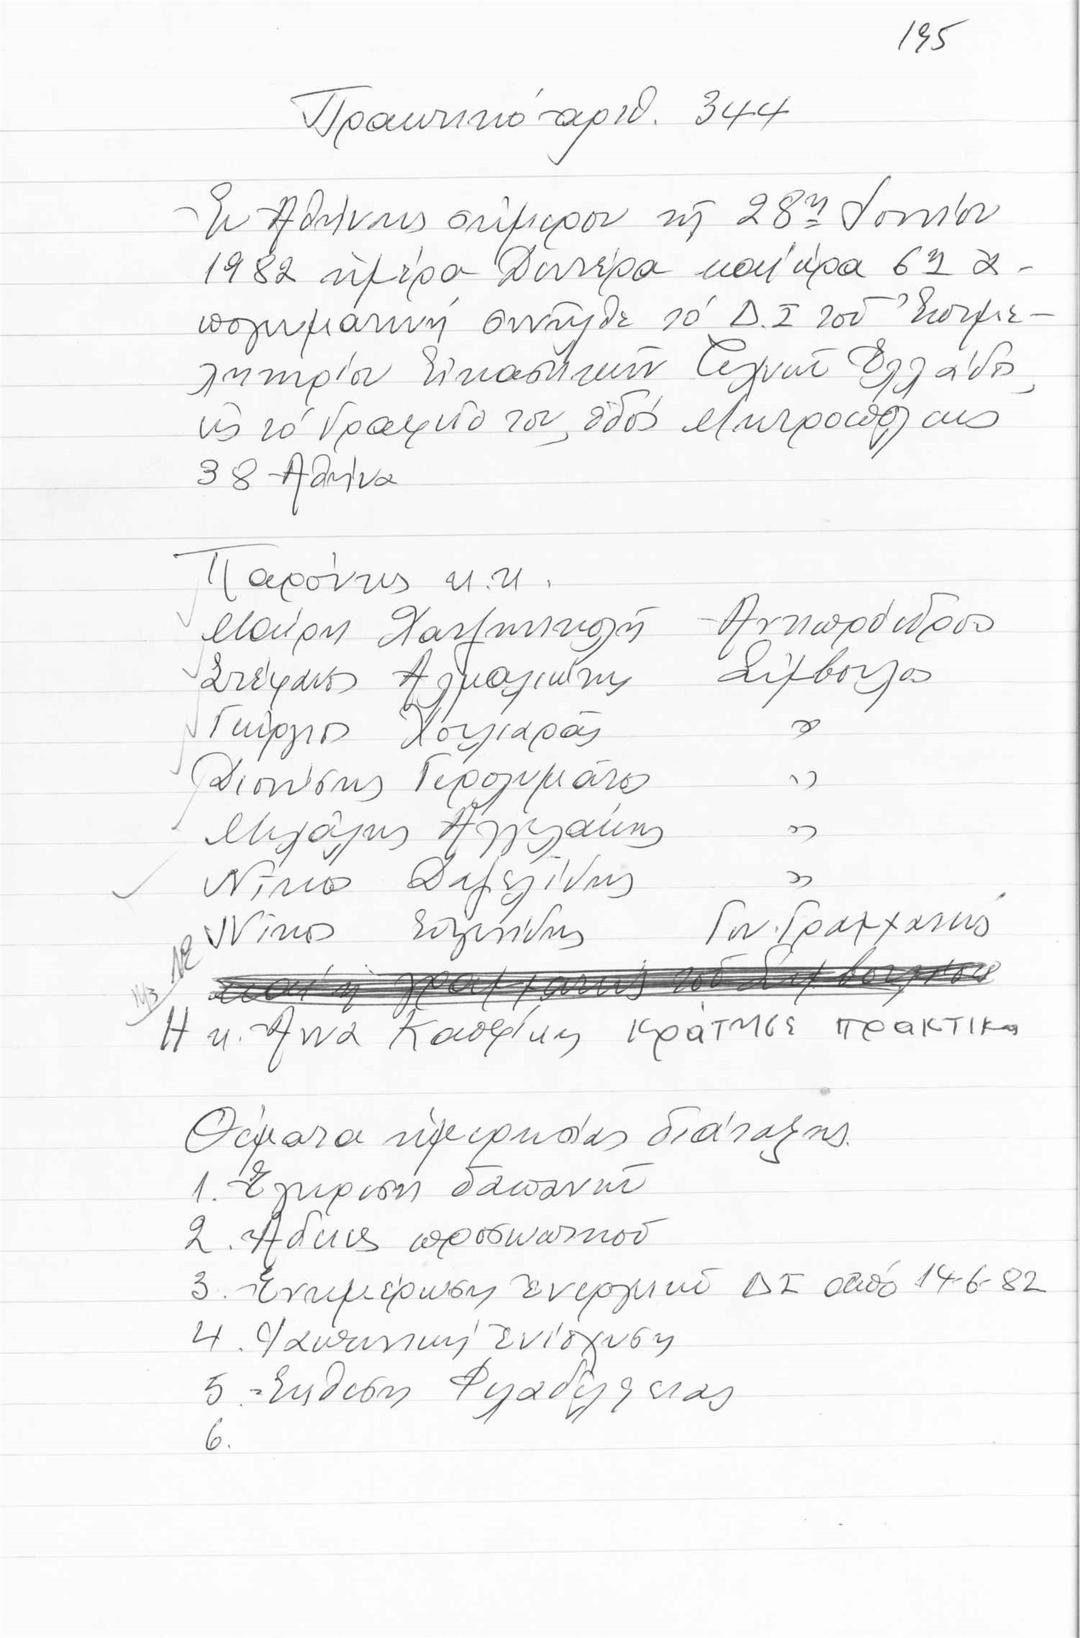 195
Πρακτικό αριθ. 344
Ἐν Ἀθήναις σήμερον τῇ 28η Ἰουνίου
1982 ἡμέρα Δευτέρα καί ὥρα 6η ἀ-
πογευματινή συνῆλθε τό Δ.Σ τοῦ Ἐπιμε-
λητηρίου Εἰκαστικῶν Τεχνῶν Ἑλλάδος,
εἰς τό Γραφεῖο του, ὁδός Μητροπόλεως
38 Ἀθήνα
Παρόντες κ.κ.
Μαίρη Χατζηνικολῆ Ἀντιπρόεδρος
Στέφανος Ἀλμαλιώτης Σύμβουλος
Γεώργιος Χουλιαράς "
Διονύσης Γερολυμάτος "
Μιχάλης Ἀγγελάκης "
Νίκος "
Νίκος Γεν. Γραμματεύς
καί ἡ γραμματεύς τοῦ Συμβουλίου
Η κ. Άννα ΚΡΑΤΗΣΕ ΠΡΑΚΤΙΚΑ
Θέματα ἡμερησίας διάταξης
1. Ἔγκριση δαπανῶν
2. Ἄδειες προσωπικοῦ
3. Ἐνημέρωση ἐνεργειῶν ΔΣ ἀπό 14-6-82
4. Ταμειακή ἐνίσχυση
5. Ἔκθεση Φιλαδέλφειας
6.